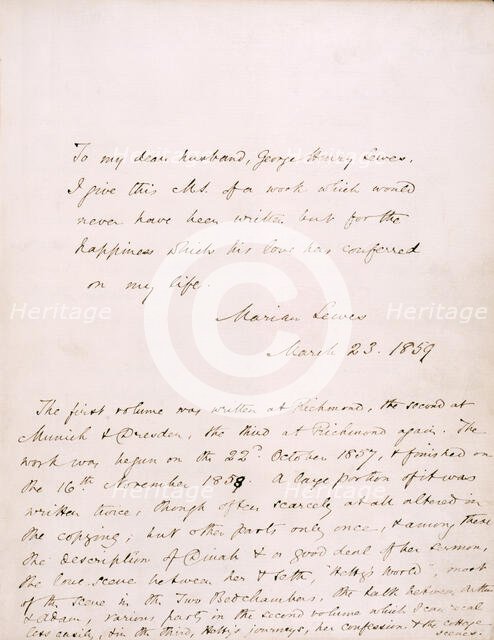 To my dear husband, George Henry Lewes,
I give this M.S. of a work which would
never have been written but for the
happiness which his love has conferred
on my life.
Marian Lewes
March 23. 1859
The first volume was written at Richmond, the second at
Munich & Dresden, the third at Richmond again. The
work was begun on the 22d. October 1857, & finished on
the 16th November 1858. A large portion of it was
written twice, though often scarcely at all altered in
the copying; but other parts only once, & among these
the description of Dinah & a good deal of her sermon,
the love scene between her & Seth, "Hetty's world", most
of the scene in the Two Bedchambers, the talk between Arthur
& Adam, various parts in the second volume which I can recal
less easily, & in the third, Hetty's journeys, her confession & the cottage
scenes.
Heritage
Heritage
Heritage
Heritage
Heritage
Heritage